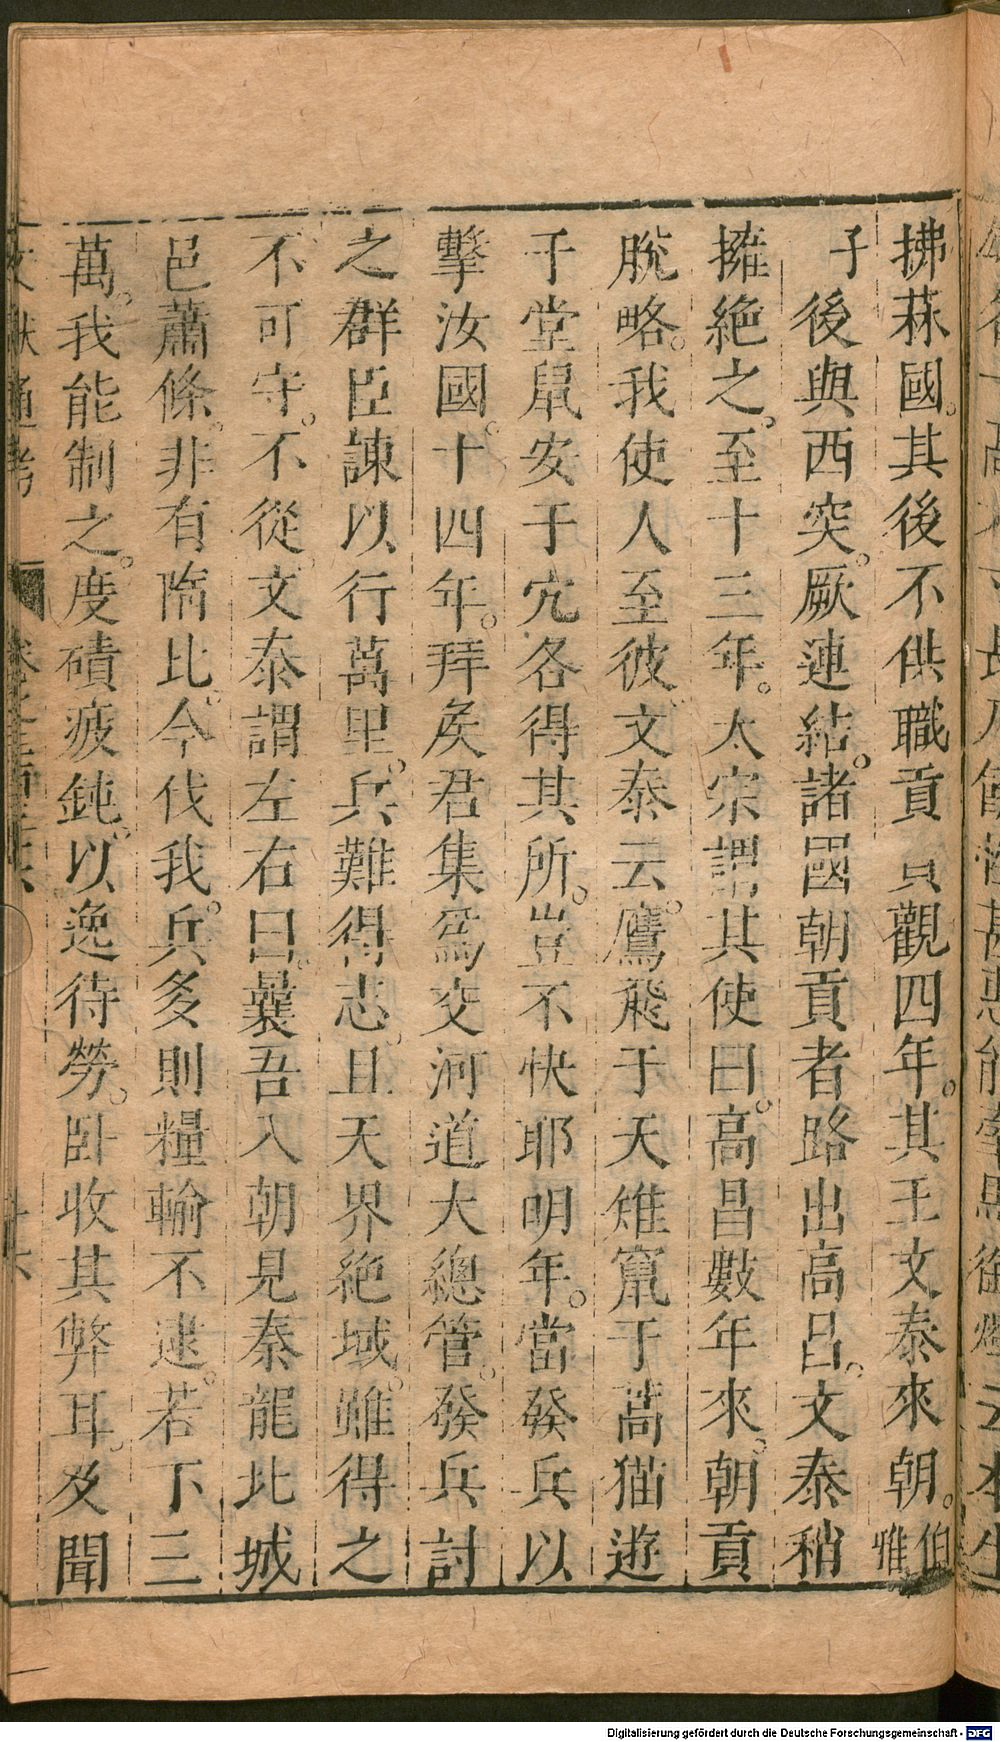 拂菻國其後不供職貢貞觀四年其王文泰來朝伯雅
子後與西突厥連結諸國朝貢者路出高昌文泰稍
擁絶之至十三年太宗謂其使曰高昌數年來朝貢
脫略我使人至彼文泰云鷹飛于天雉竄于蒿猫遊
于堂鼠安于穴各得其所豈不快耶明年當發兵以
擊汝國十四年拜矦君集爲交河道大總管發兵討
之群臣諫以行萬里兵難得志且天界絶域雖得之
不可守不從文泰謂左右曰曩吾入朝見秦龍北城
邑蕭條非有隋比今伐我兵多則糧輸不逮若下三
萬我能制之度磧疲鈍以逸待勞卧收其弊耳及聞
文獻通考
Digitalisierung gefördert durch die Deutsche Forschungsgemeinschaft - DFG